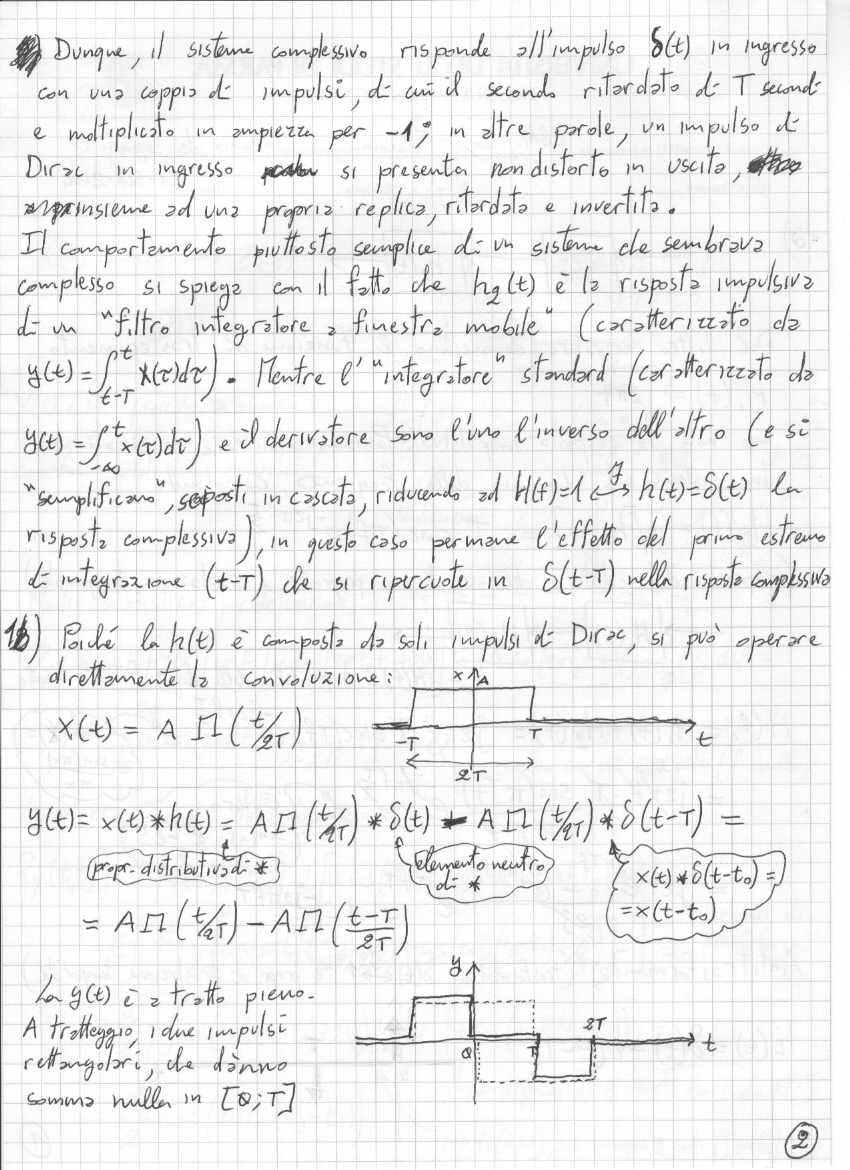 Dunque, il sistema complessivo risponde all'impulso δ(t) in ingresso
con una coppia di impulsi, di cui il secondo ritardato di T secondi
e moltiplicato in ampiezza per -1; in altre parole, un impulso di
Dirac in ingresso si presenta non distorto in uscita,
insieme ad una propria replica, ritardata e invertita.
Il comportamento piuttosto semplice di un sistema che sembrava
complesso si spiega con il fatto che h₂(t) è la risposta impulsiva
di un "filtro integratore a finestra mobile" (caratterizzato da
y(t) = ∫_{t-T}^{t} x(τ)dτ). Mentre l'"integratore" standard (caratterizzato da
y(t) = ∫_{-∞}^{t} x(τ)dτ) e il derivatore sono l'uno l'inverso dell'altro (e si
"semplificano", se posti in cascata, riducendo ad H(f)=1 ↔ h(t)=δ(t) la
risposta complessiva), in questo caso permane l'effetto del primo estremo
di integrazione (t-T) che si ripercuote in δ(t-T) nella risposta complessiva
1b) Poiché la h(t) è composta da soli impulsi di Dirac, si può operare
direttamente la convoluzione:
x A
x(t) = A Π(t/2T)
-T T t
2T
y(t) = x(t) * h(t) = A Π(t/2T) * δ(t) - A Π(t/2T) * δ(t-T) =
propr. distributiva di *
elemento neutro
di *
x(t) * δ(t-t₀) =
= x(t-t₀)
= A Π(t/2T) - A Π((t-T)/2T)
y
La y(t) è a tratto pieno.
A tratteggio, i due impulsi
rettangolari, che dànno
somma nulla in [0;T]
0 T 2T t
2